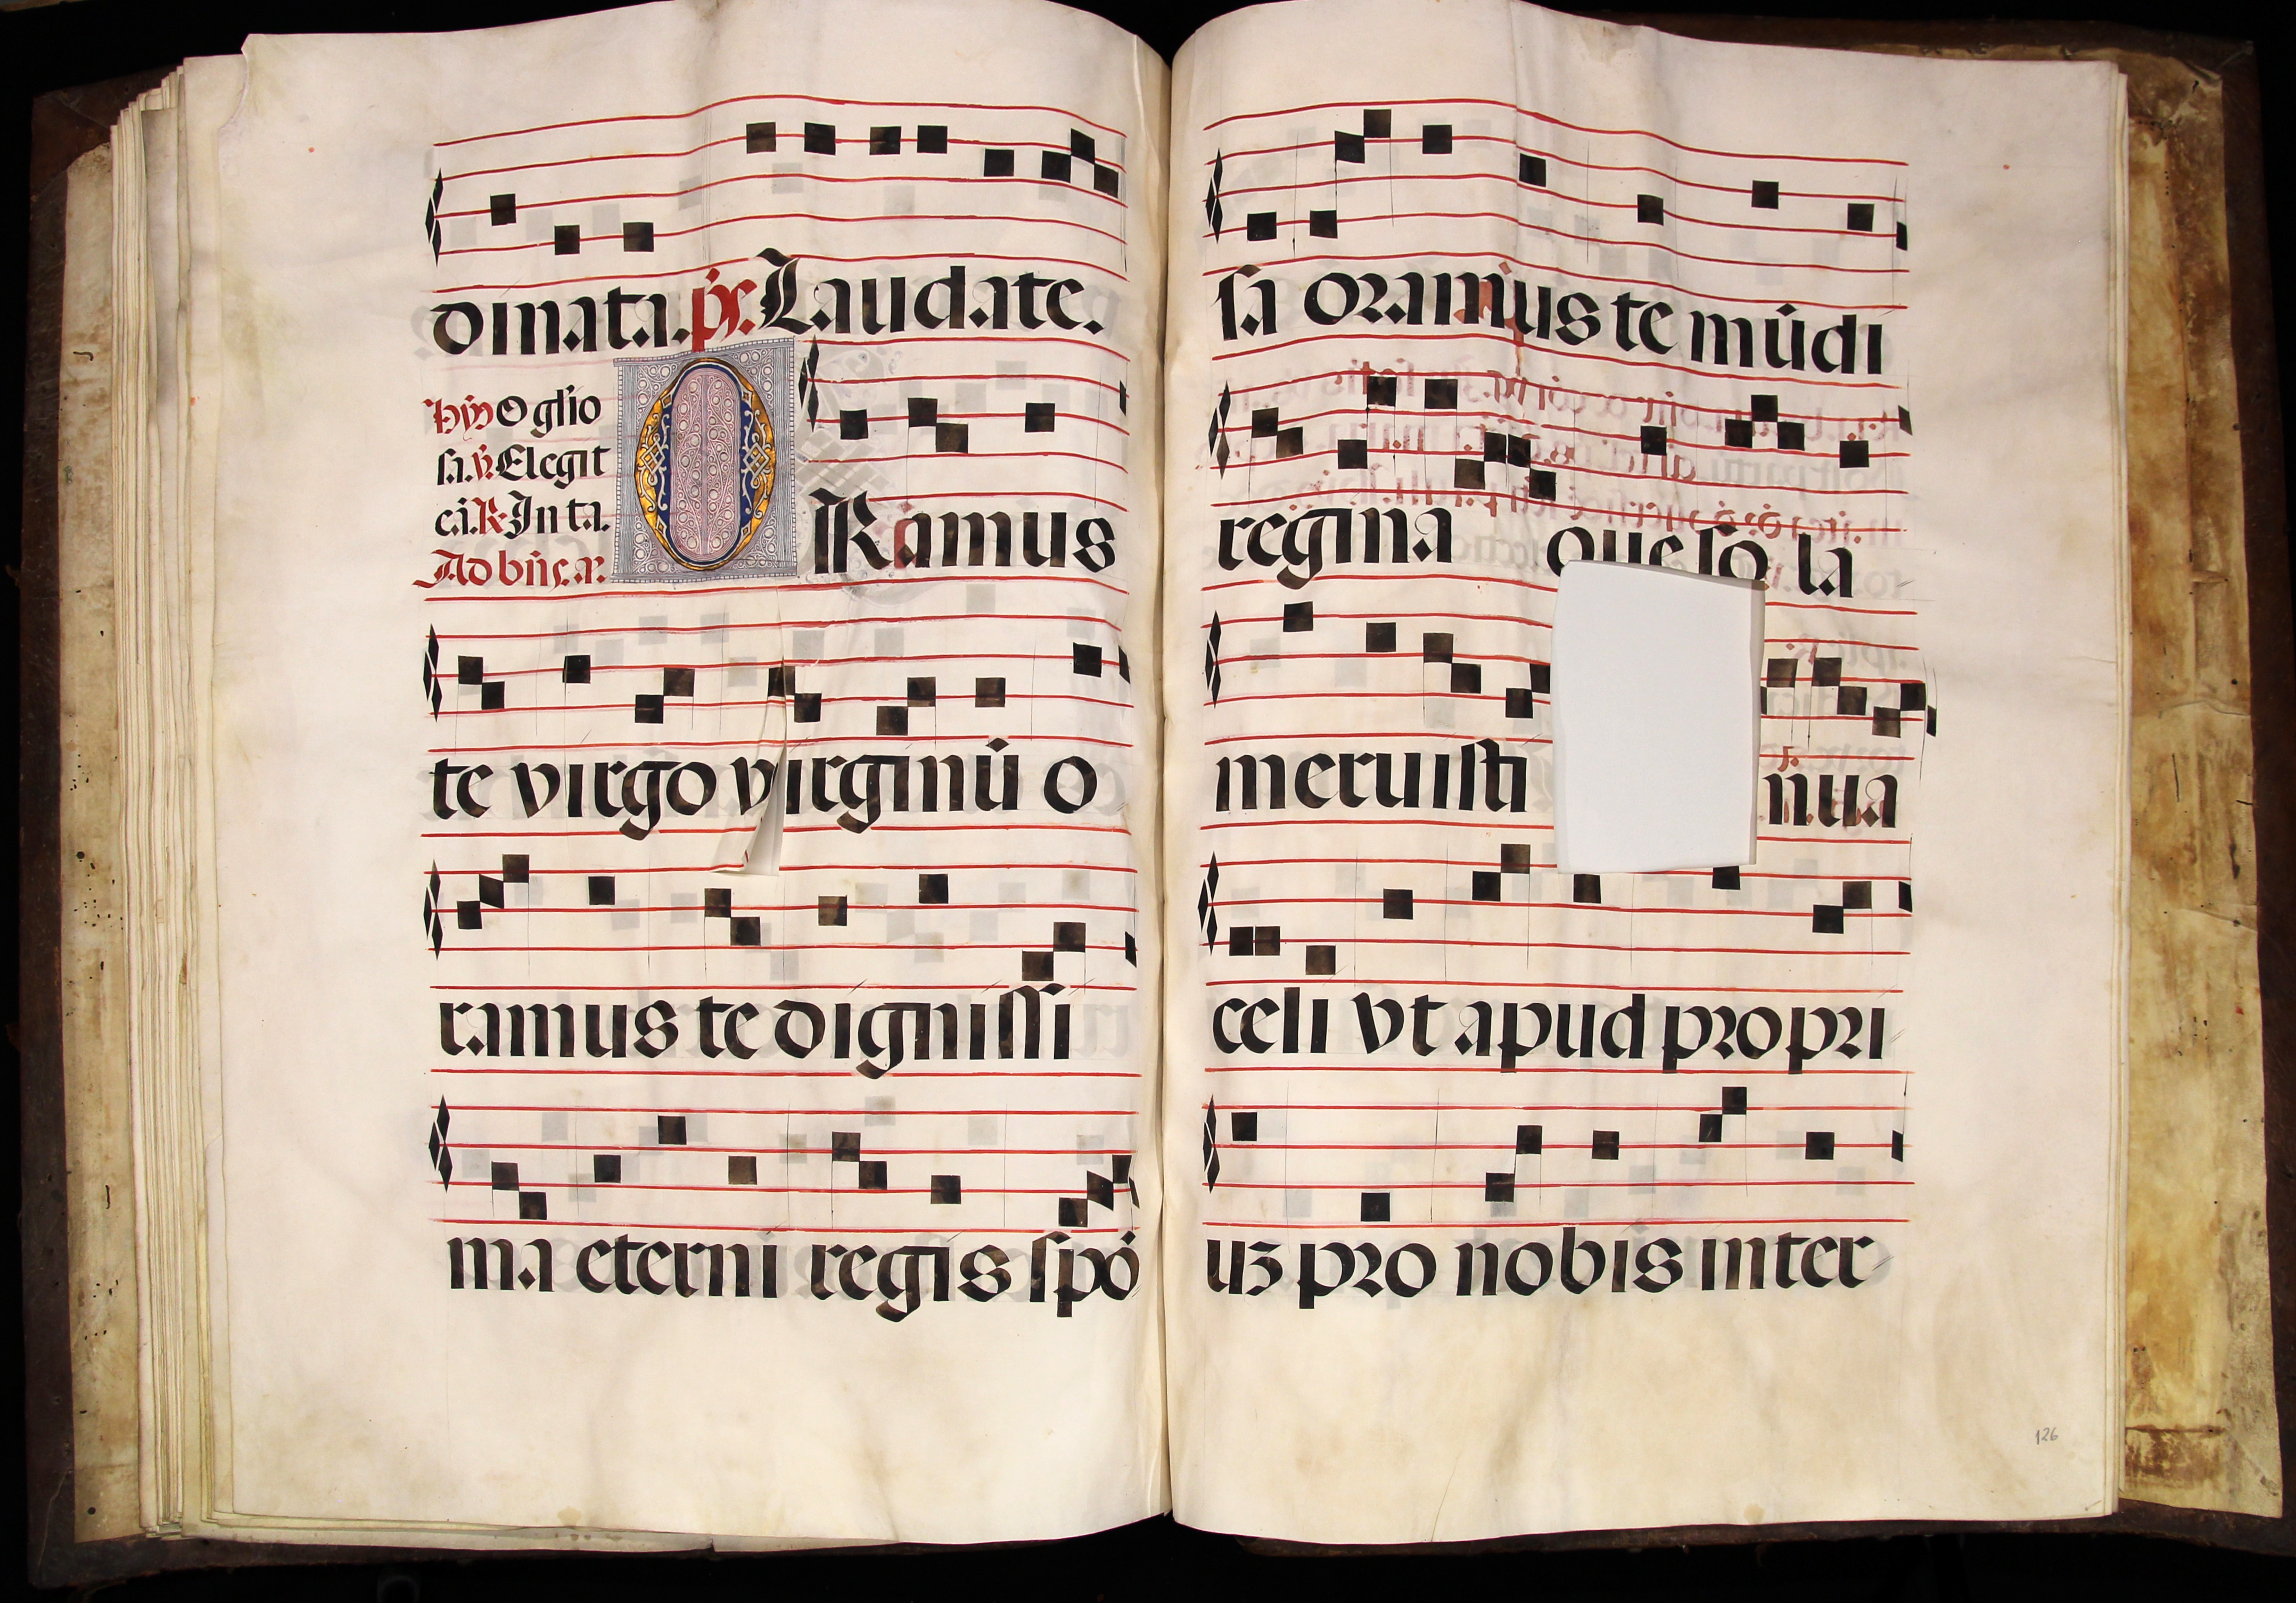 dinata. ps. Laudate.
Hym O glio
sa. v. Elegit
eā. R. In ta.
Ad bn̄s. aꝫ.
ORamus
te virgo virginū o
ramus te dignissi
ma eterni regis spō
sa oramus te mūdi
regina que sola
meruisti nua
celi vt apud propri
uꝫ pro nobis inter
126